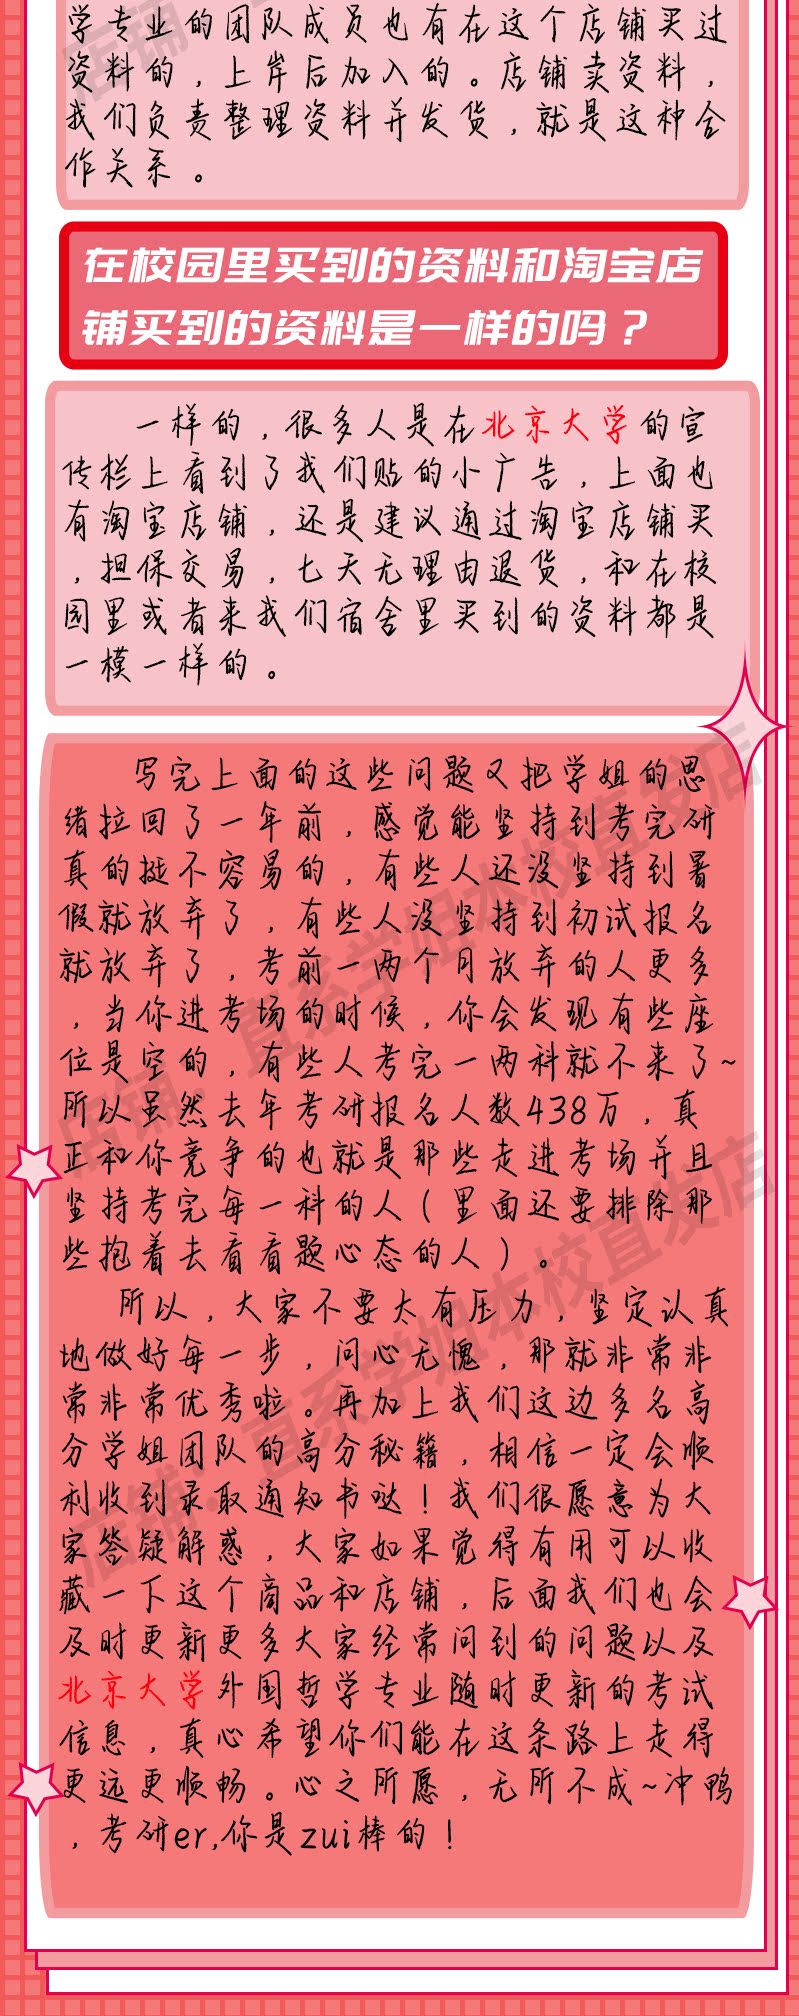 学专业的团队成员也有在这个店铺买过
资料的，上岸后加入的。店铺卖资料，
我们负责整理资料并发货，就是这种合
作关系。
在校园里买到的资料和淘宝店
铺买到的资料是一样的吗？
一样的，很多人是在北京大学的宣
传栏上看到了我们贴的小广告，上面也
有淘宝店铺，还是建议通过淘宝店铺买
，担保交易，七天无理由退货，和在校
园里或者来我们宿舍里买到的资料都是
一模一样的。
写完上面的这些问题又把学姐的思
绪拉回了一年前，感觉能坚持到考完研
真的挺不容易的，有些人还没坚持到暑
假就放弃了，有些人没坚持到初试报名
就放弃了，考前一两个月放弃的人更多
，当你进考场的时候，你会发现有些座
位是空的，有些人考完一两科就不来了~
所以虽然去年考研报名人数438万，真
正和你竞争的也就是那些走进考场并且
坚持考完每一科的人（里面还要排除那
些抱着去看看题心态的人）。
所以，大家不要太有压力，坚定认真
地做好每一步，问心无愧，那就非常非
常非常优秀啦。再加上我们这边多名高
分学姐团队的高分秘籍，相信一定会顺
利收到录取通知书哒！我们很愿意为大
家答疑解惑，大家如果觉得有用可以收
藏一下这个商品和店铺，后面我们也会
及时更新更多大家经常问到的问题以及
北京大学外国哲学专业随时更新的考试
信息，真心希望你们能在这条路上走得
更远更顺畅。心之所愿，无所不成~冲鸭
，考研er,你是zui棒的！
店铺：直系学姐本校直发店
店铺：直系学姐本校直发店